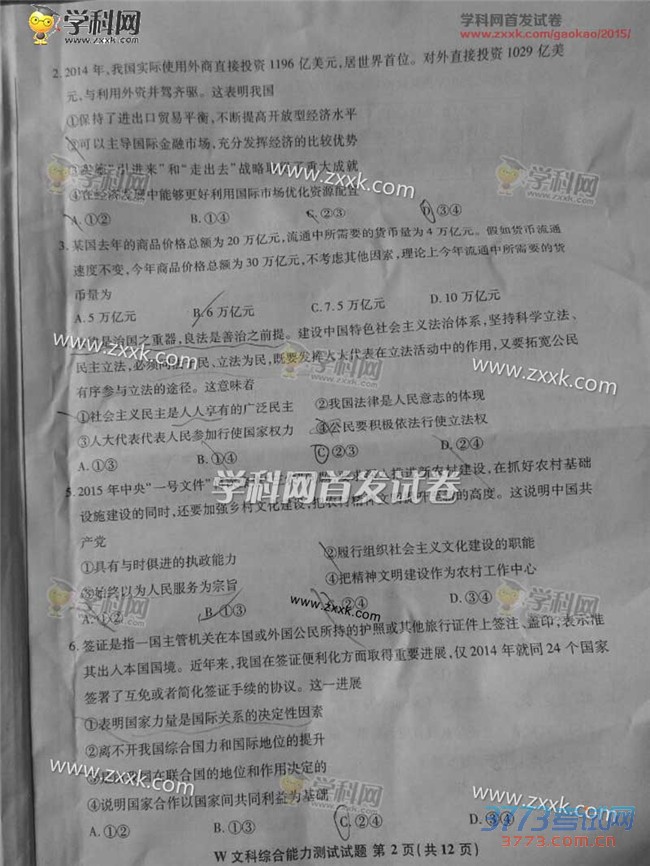 学科网
学科网首发试卷
www.zxxk.com/gaokao/2015/
2. 2014 年,我国实际使用外商直接投资 1196 亿美元,居世界首位。对外直接投资 1029 亿美
元,与利用外资并驾齐驱。这表明我国
①保持了进出口贸易平衡,不断提高开放型经济水平
②可以主导国际金融市场,充分发挥经济的比较优势
“引进来”和“走出去”战略取得了重大成就
www.zxxk.com
学科网
④在经济发展中能够更好利用国际市场优化资源配置
A.①② B.①④ C.②③ D.③④
3. 某国去年的商品价格总额为 20 万亿元,流通中所需要的货币量为 4 万亿元。假如货币流通
速度不变,今年商品价格总额为 30 万亿元,不考虑其他因素,理论上今年流通中所需要的货
币量为
A. 5 万亿元 B. 6 万亿元 C. 7.5 万亿元 D. 10 万亿元
是治国之重器,良法是善治之前提。建设中国特色社会主义法治体系,坚持科学立法、
www.zxxk.com
学科网
www.zxxk.com
民主立法,必须 民、立法为民,既要发挥人大代表在立法活动中的作用,又要拓宽公民
有序参与立法的途径。这意味着
①社会主义民主是人人享有的广泛民主 ②我国法律是人民意志的体现
③人大代表代表人民参加行使国家权力 ④公民要积极依法行使立法权
A.①③ B.①④ C.②③ D.②④
5. 2015 年中央“一号文件” 推进新农村建设,在抓好农村基础
学科网首发试卷
设施建设的同时,还要加强乡村文化建设, 的高度。这说明中国共
产党
①具有与时俱进的执政能力 ②履行组织社会主义文化建设的职能
③始终以为人民服务为宗旨 ④把精神文明建设作为农村工作中心
A.①② B.①③ C.②④ D.③④
学科网
www.zxxk.com
学科网
6. 签证是指一国主管机关在本国或外国公民所持的护照或其他旅行证件上签注、盖印,表示准
其出入本国国境。近年来,我国在签证便利化方面取得重要进展,仅 2014 年就同 24 个国家
签署了互免或者简化签证手续的协议。这一进展
①表明国家力量是国际关系的决定性因素
②离不开我国综合国力和国际地位的提升
③是 国在联合国的地位和作用决定的
④说明国家合作以国家间共同利益为基础
www.zxxk.com
学科网
www.zxxk.com
A.①② B.①③ C.②④ D.③④
W 文科综合能力测试试题 第 2 页(共 12 页)
3773考试网
www.3773.com